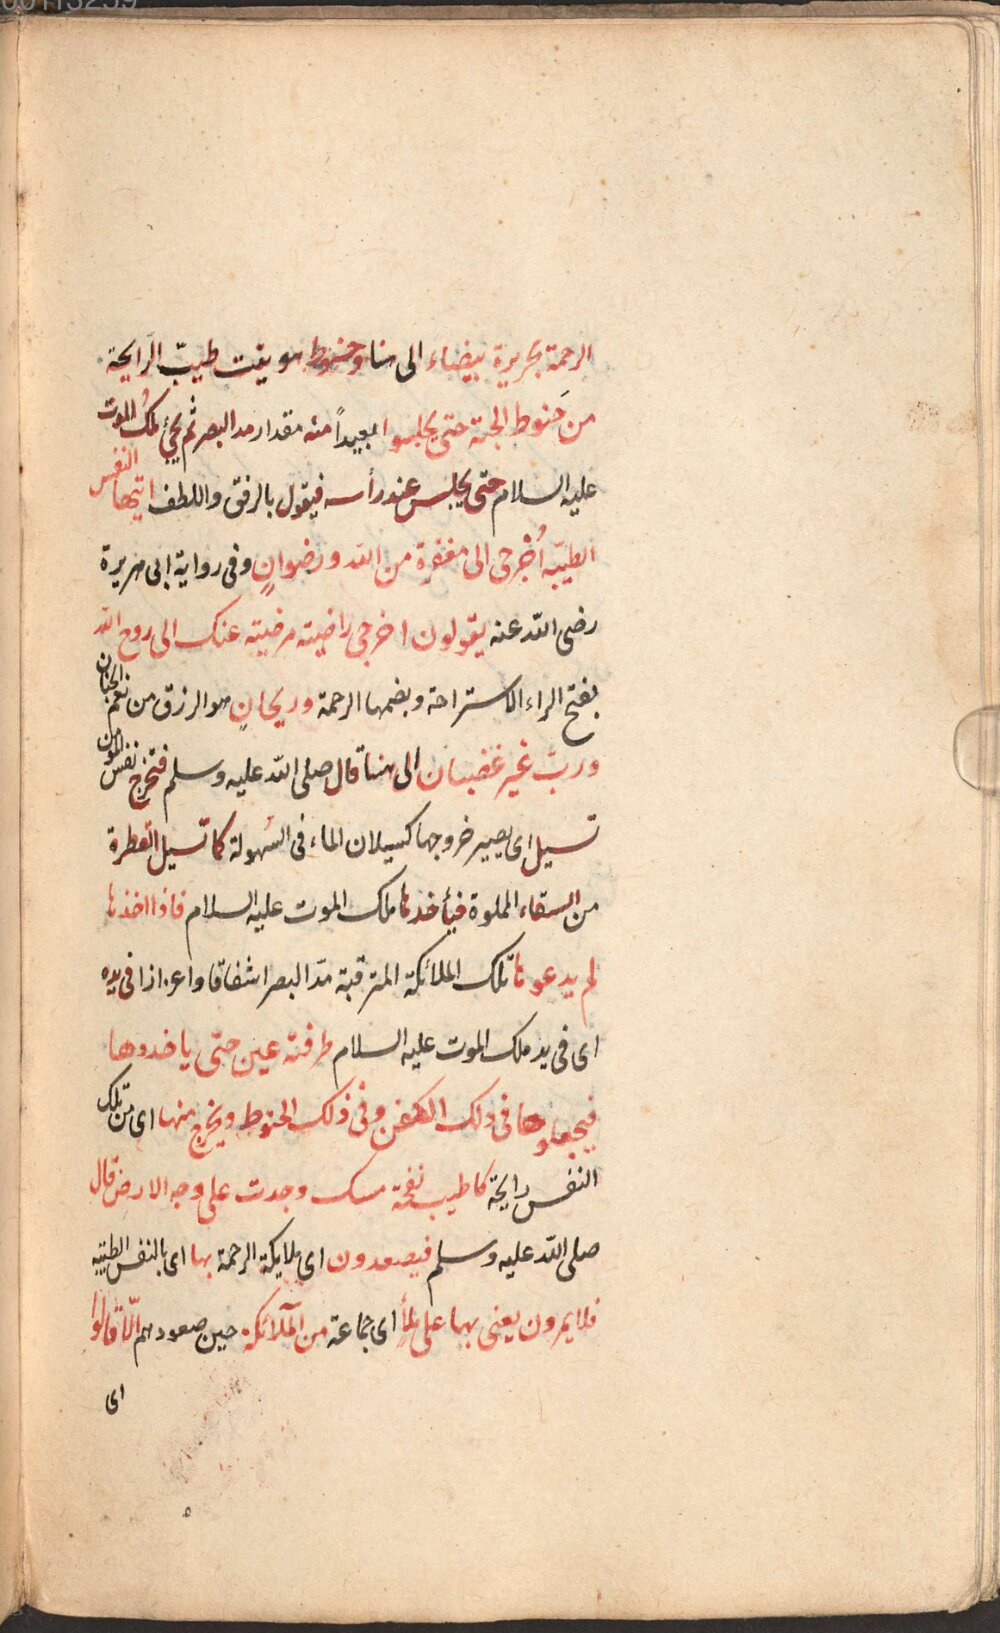 الرحمة بحريرة بيضاء الى هنا وحنوط هو يفت طيبّ الرّايحة
من حَنوط الجنة حتى يجلسوا بعيداً منه مقدار مد البصر ثم يجئ ملك الموت
عليه السلام حتى يجلس عند رأسه فيقول بالرفق واللطف ايتها النفس
الطيبّه اُخرجى الى مغفرة من الله ورضوانٍ وفى رواية ابى هريرة
رضى الله عنه يقولون اخرجى راضيته مرضيته عنك الى روح الله
بفتح الراء الاستراحة وبضمها الرحمة وريحانٍ هو الرزق من نعم الجنان
وربّ غير غضبان الى هنا قال صلى الله عليه وسلم فتخرج نفس المؤمن
تسيل اى يصير خروجها كسيلان الماء فى السُهولة كما تسيل القطرة
من السقاء المملوة فيأخذها ملك الموت عليه السلام فاذا اخذها
لم يدعوها تلك الملائكة المترقبة مدّ البصر اشفاقا واعزازا فى يده
اى فى يد ملك الموت عليه السلام طرفته عين حتّى ياخذوها
فيجعلوها فى ذلك الكفن وفى ذلك الحنوط ويخرج منها اى من تلك
النفس رايحة كاطيب نفحة مسك وجدت على وجه الارض قال
صلى الله عليه وسلم فيصعدون اى ملايكة الرحمة بها اى بالنفس الطيبّه
فلا يمرون يعنى بها على ملأ اى جماعة من الملآئكة حين صعودهم الّا قالوا
اى